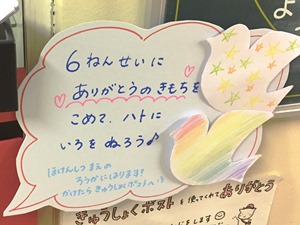 6ねんせいに
ありがとうのきもちを
こめて、ハトに
いろをぬろう♪
ほけんしつ まえの
ろうかにはります!
かけたら きゅうしょくポストへ
きゅうしょくポストを使ってくれてありがとう